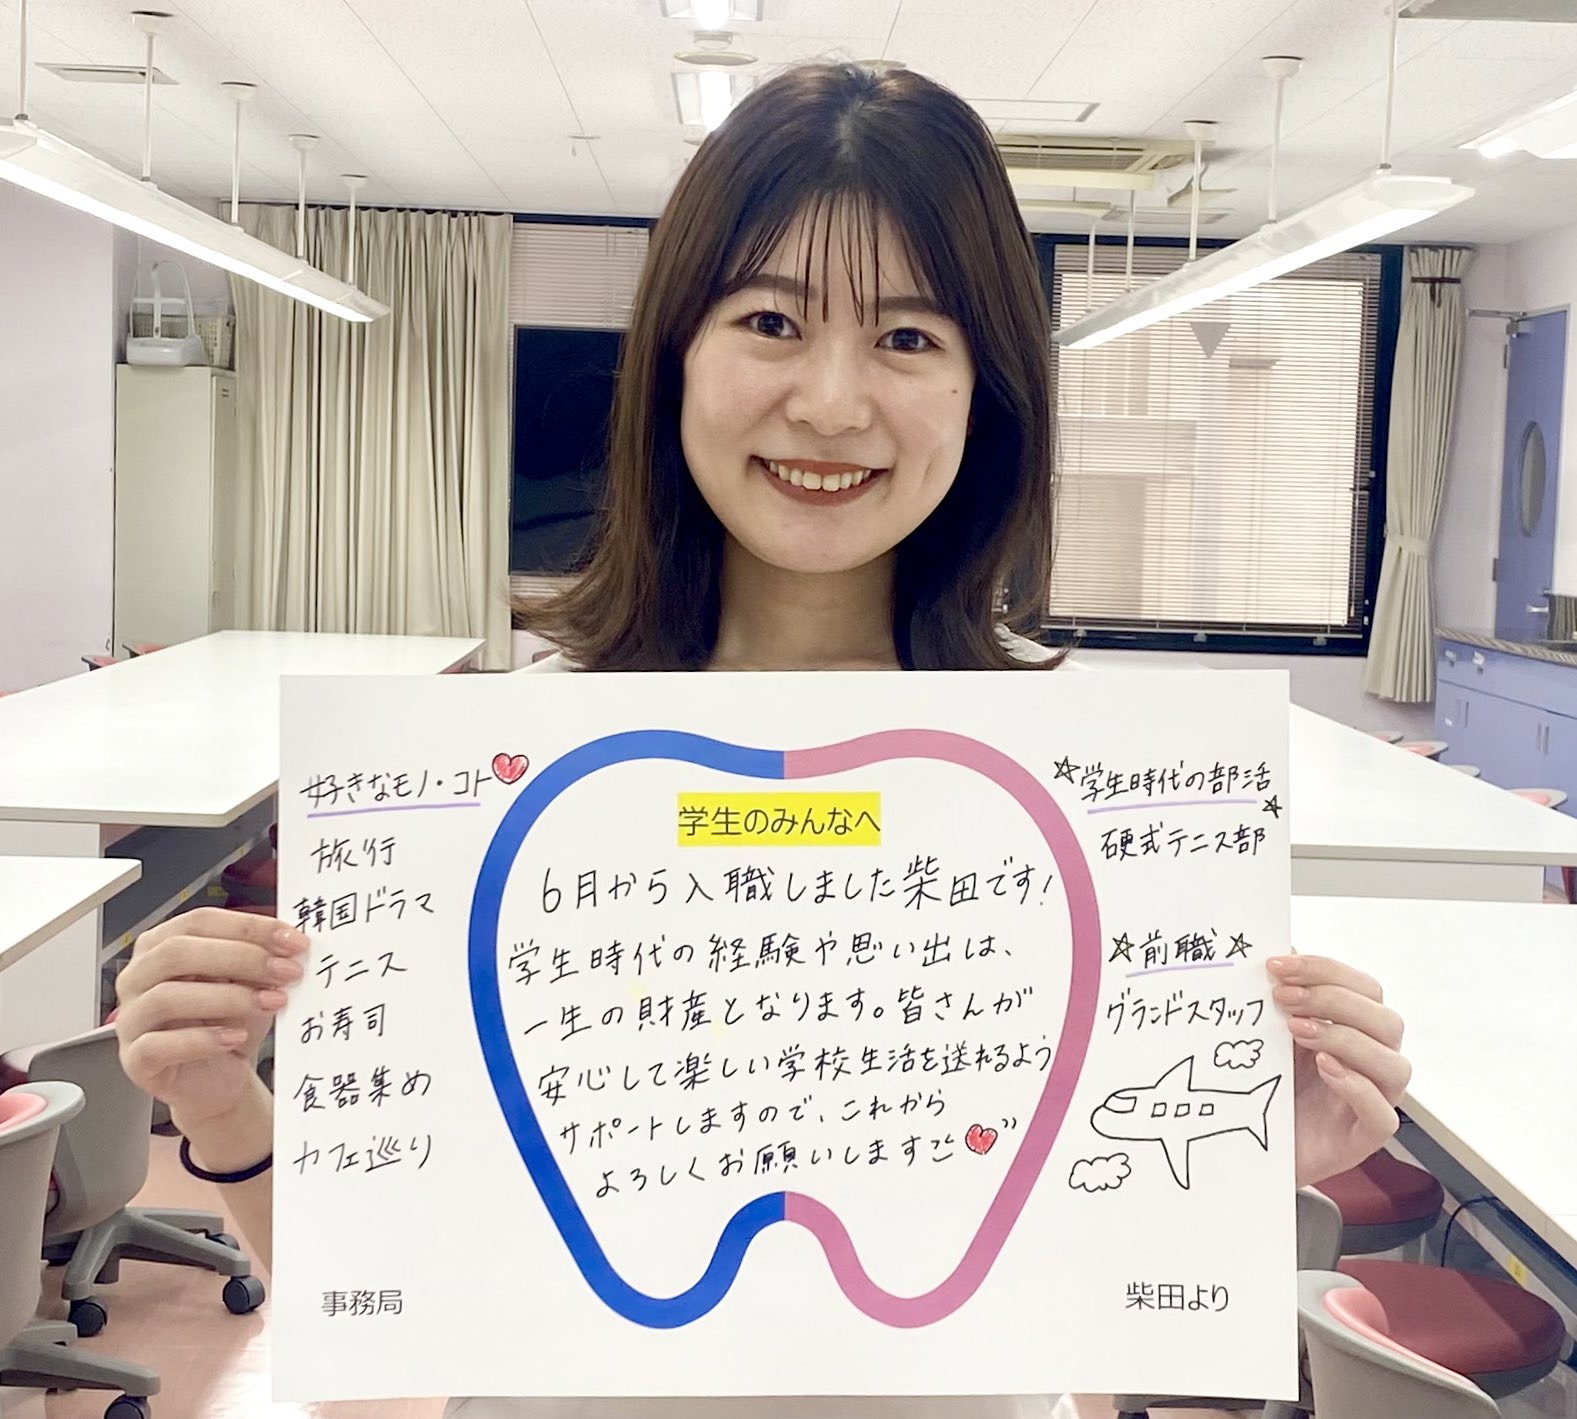 好きなモノ・コト
旅行
韓国ドラマ
テニス
お寿司
食器集め
カフェ巡り
事務局
学生のみんなへ
6月から入職しました柴田です!
学生時代の経験や思い出は、
一生の財産となります。皆さんが
安心して楽しい学校生活を送れるよう
サポートしますので、これから
よろしくお願いします
学生時代の部活
硬式テニス部
前職
グランドスタッフ
柴田より